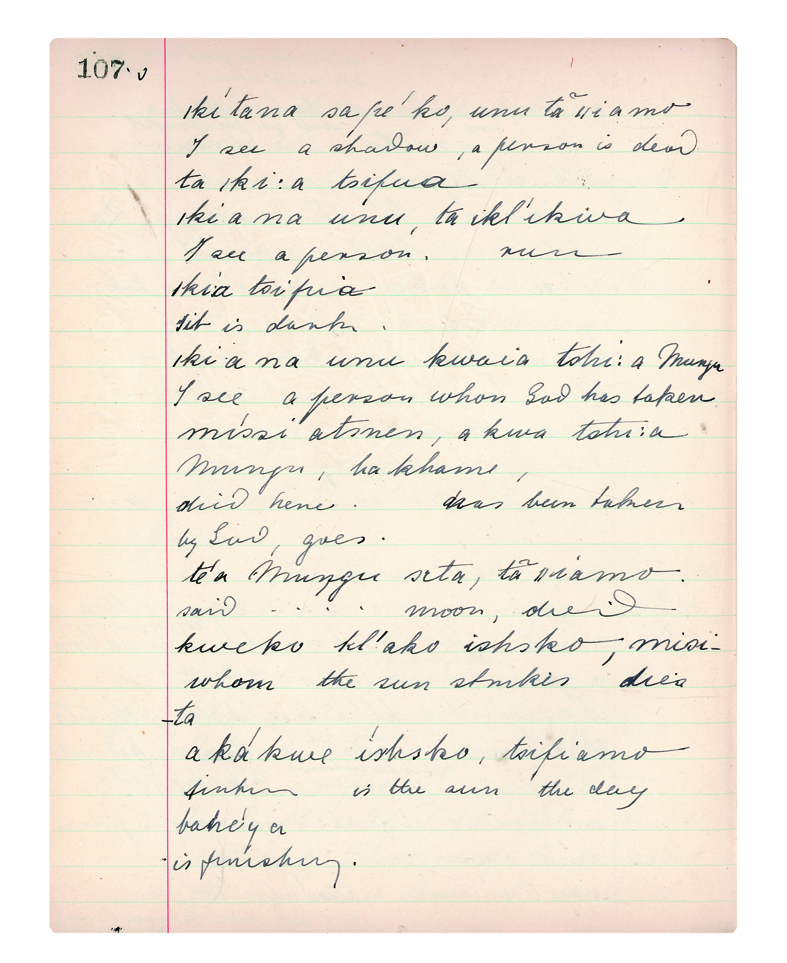 107.
ıkí tana sapé ko, unu tã ıııamo
I see a shadow, a person is dead
ta ıki:a tsifua
ıkiana unu, ta ikl'ikiva
I see a person. run
ıkia tsifia
it is dark.
ıkiana unu kwaia tshi:a Mungu
I see a person whom God has taken
missi atsnen, akwa tshi:a
Mungu, hakhame,
died here. has been taken
by God, goes.
téa Mungu seta, tã ıııámo.
said . . . . moon, died
kweko kl'ako ishsko, misi-
whom the sun strikes dies
-ta
akákwe íshsko, tsifiamo
sinken is the sun the day
bahéya
is finishing.